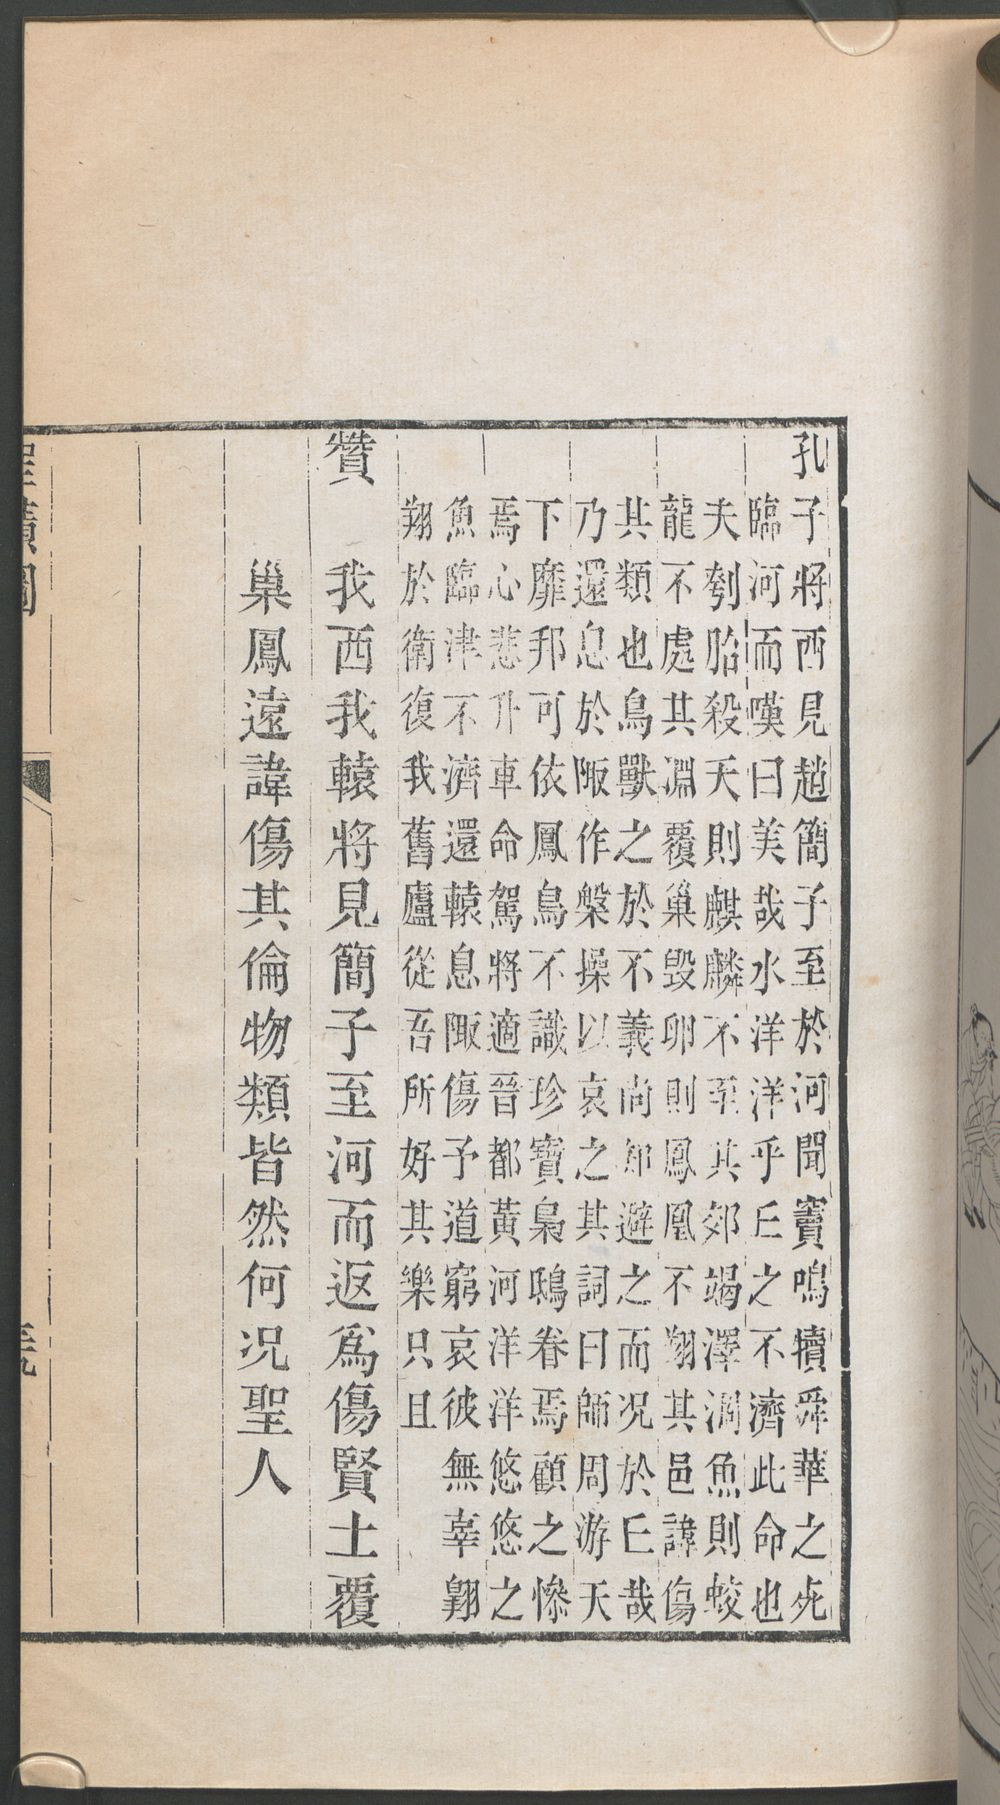 孔子將西見趙簡子至於河聞竇鳴犢舜華之死
臨河而嘆曰美哉水洋洋乎丘之不濟此命也
夫刳胎殺夭則麒麟不至其郊竭澤涸魚則蛟
龍不處其淵覆巢毀卵則鳳凰不翔其邑諱傷
其類也鳥獸之於不義尚知避之而况於丘哉
乃還息於陬作槃操以哀之其詞曰師周游天
下靡邦可依鳳鳥不識珍寶梟鴟卷焉顧之慘
焉心悲升車命駕將適晉都黃河洋洋悠悠之
魚臨津不濟還轅息陬傷予道窮哀彼無辜翱
翔於衛復我舊廬從吾所好其樂只且
贊 我西我轅將見簡子至河而返爲傷賢士覆
巢鳳遠諱傷其倫物類皆然何况聖人
聖蹟圖